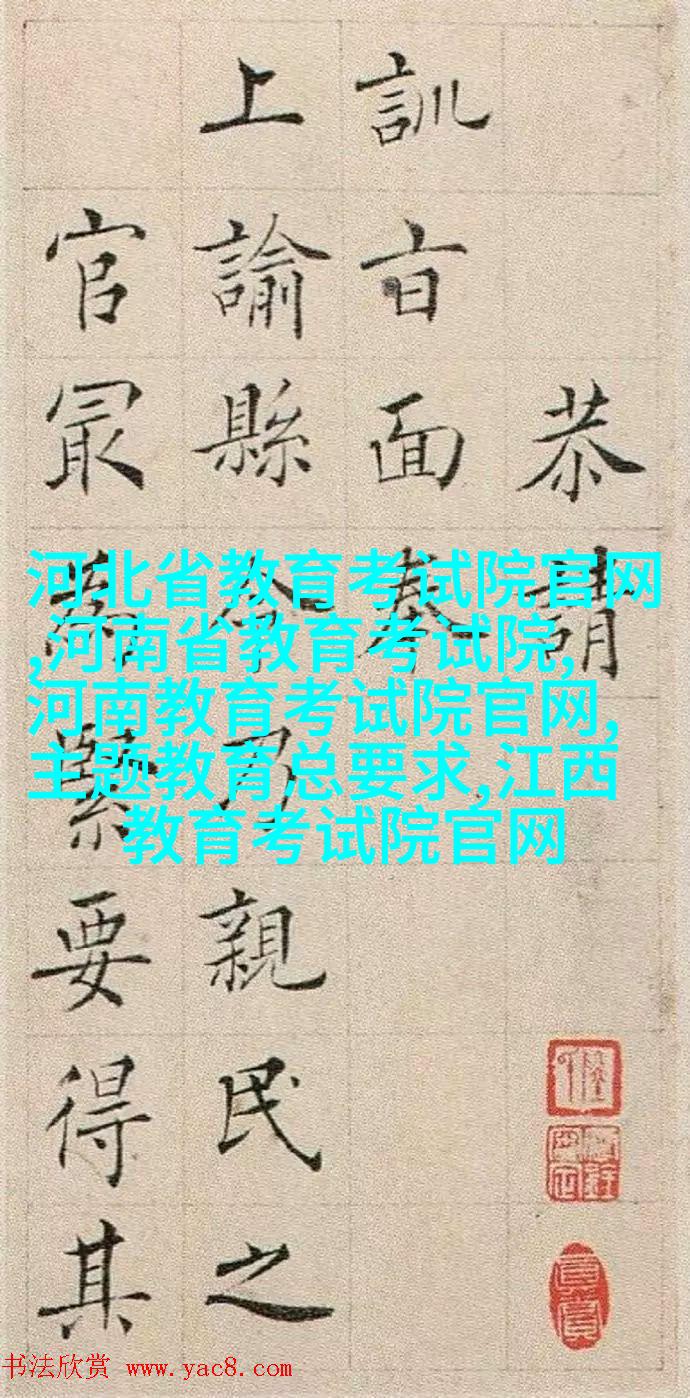 恭請
訓㫖面奉
上諭縣令乃親民之
官最為緊要得其
河北省教育考试院官网
,河南省教育考试院,
河南教育考试院官网,
主题教育总要求,江西
教育考试院官网
书法欣赏 www.yac8.com